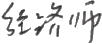 经济师